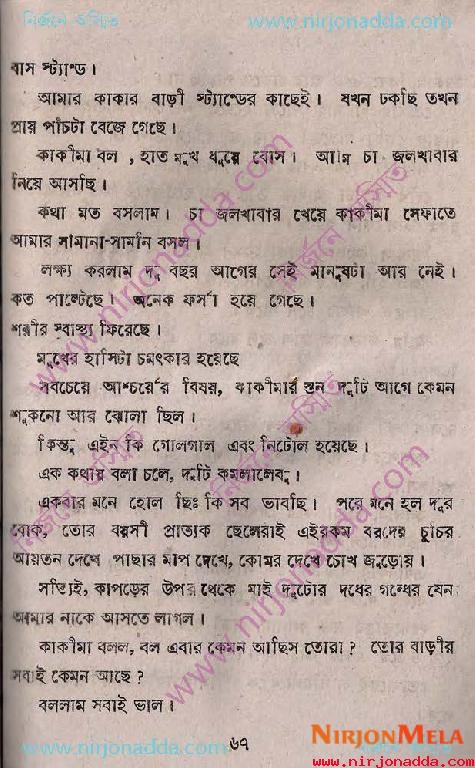 নির্জনে উপস্থিত www.nirjonadda.com
বাস স্ট্যান্ড।
আমার কাকার বাড়ী স্ট্যান্ডের কাছেই। যখন ঢুকছি তখন
প্রায় পাঁচটা বেজে গেছে।
কাকীমা বল, হাত মুখ ধুয়ে বোস। আমি চা জলখাবার
নিয়ে আসছি।
কথা মত বসলাম। চা জলখাবার খেয়ে কাকীমা সোফাতে
আমার সামানা-সামনি বসল।
লক্ষ্য করলাম দু বছর আগের সেই মানুষটা আর নেই।
কত পাল্টেছে। অনেক ফর্সা হয়ে গেছে।
শরীর স্বাস্থ্য ফিরেছে।
মুখের হাসিটা চমৎকার হয়েছে
সবচেয়ে আশ্চর্যের বিষয়, কাকীমার স্তন দুটি আগে কেমন
শুকনো আর ঝোলা ছিল।
কিন্তু এইন কি গোলগাল এবং নিটোল হয়েছে।
এক কথায় বলা চলে, দুটি কমলালেবু।
একবার মনে হোল ছিঃ কি সব ভাবছি। পরে মনে হল দুর
বোক, তোর বয়সী প্রত্যক ছেলেরাই এইরকম চুচির
আয়তন দেখে পাছার মাপ দেখে, কোমর দেখে চোখ জুড়োয়।
সত্যিই, কাপড়ের উপর থেকে মাই দুটোর দুধের গন্ধের যেন
আমার নাকে আসতে লাগল।
কাকীমা বলল, বল এবার কেমন আছিস তোরা? তোর বাড়ীর
সবাই কেমন আছে?
বললাম সবাই ভাল।
www.nirjonadda.com
৬৭
NIRJONMELA
www.nirjonadda.com